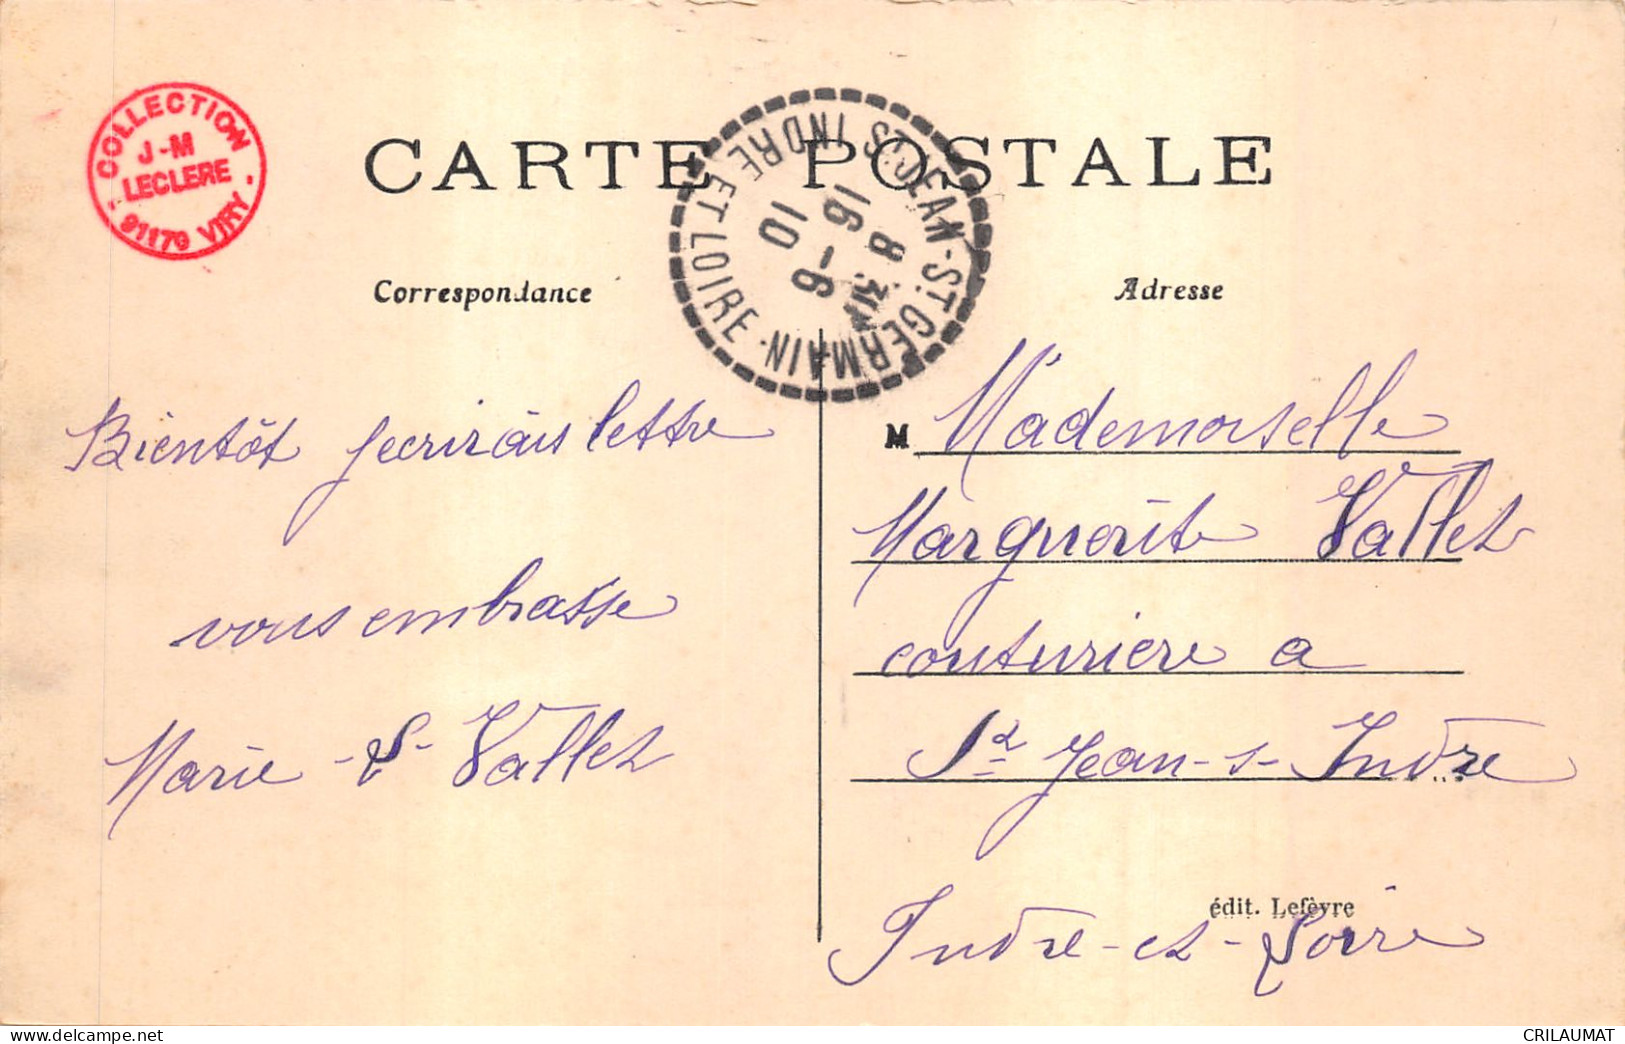 COLLECTION
J-M
LECLERE
- 91170 VIRY -
CARTE POSTALE
ST JEAN-ST GERMAIN - INDRE ET LOIRE
16 8
10 -6
Correspondance
Adresse
Bientôt jecrirais lettre
vous embrasse
Marie - S- Vallet
M Mademoiselle
Marguerite Vallet
couturiere a
St Jean-s-Indre
Indre-et-Loire
édit. Lefèvre
CRILAUMAT